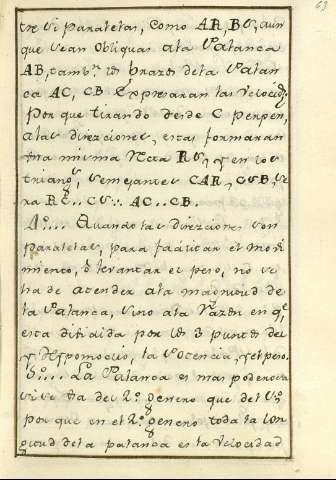 63
tre si paralelas, como AR, BS, aun
que sean obliquas ala Palanca
AB, tamb.n los brazos dela Palan
ca AC, CB Expresaran las velocid.s
Por que tirando desde C perpen,
alas direziones, estas formaran
una misma Recta RS, y en los
triang.s semejantes CAR, CSB, se
ra RC..CS:: AC..CB.
4.o.... Quando las direziones son
paralelas, para facilitar el movi
miento, o levantar el peso, no se
ha de atender ala magnitud de
la Palanca, sino ala Razon en q.e
esta dibidida por los 3 puntos del
Hypomoclio, la Potencia, y el peso.
5.o.... La Palanca es mas poderosa
si se usa del 2.o genero que del
por que en el 2.o genero toda la lon
gitud dela palanca es la velocidad